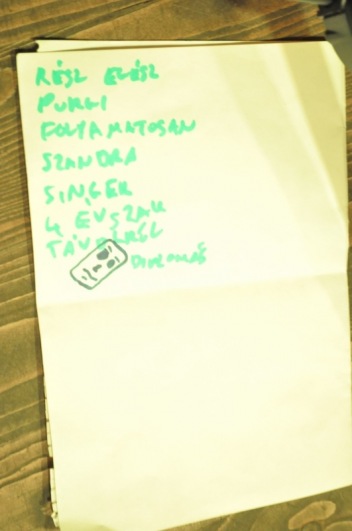 RÉSZ EGÉSZ
PURLI
FOLYAMATOSAN
SZANDRA
SINGER
4 ÉVSZAK
DIPLOMÁS